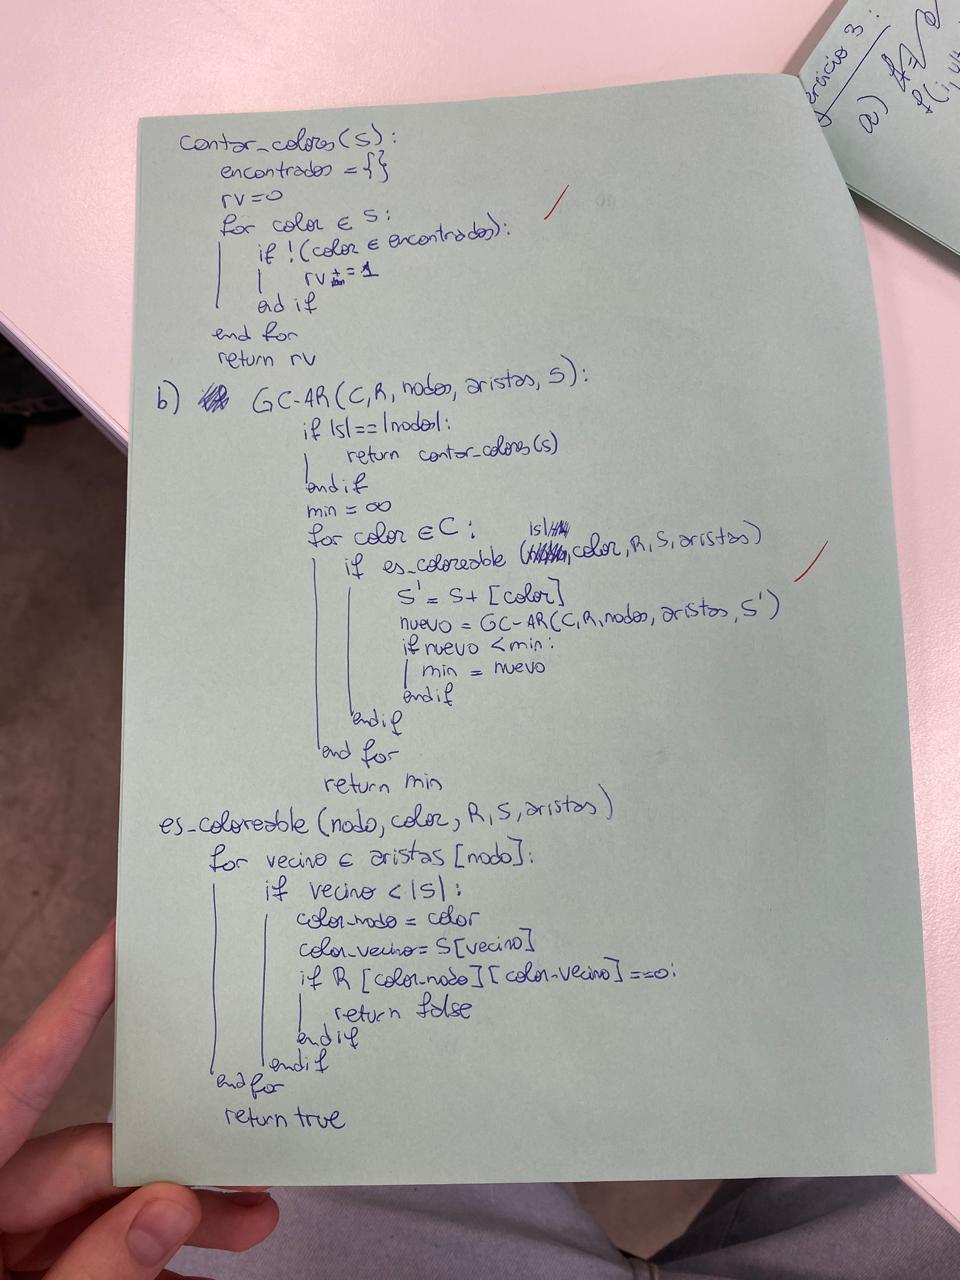 contar_colores(S):
encontrados = {}
rv=0
for color ∈ S:
if !(color ∈ encontrados):
rv += 1
end if
end for
return rv
b) GC-AR(C, R, nodos, aristas, S):
if |S| == |nodos|:
return contar_colores(S)
endif
min = ∞
for color ∈ C:
if es_coloreable (|S|, color, R, S, aristas)
S' = S + [color]
nuevo = GC-AR(C, R, nodos, aristas, S')
if nuevo < min:
min = nuevo
endif
endif
end for
return min
es_coloreable (nodo, color, R, S, aristas)
for vecino ∈ aristas [nodo]:
if vecino < |S|:
color_nodo = color
color_vecino = S[vecino]
if R [color_nodo][color_vecino] == 0:
return false
endif
endif
endfor
return true
ercicio 3:
a)
f(i,